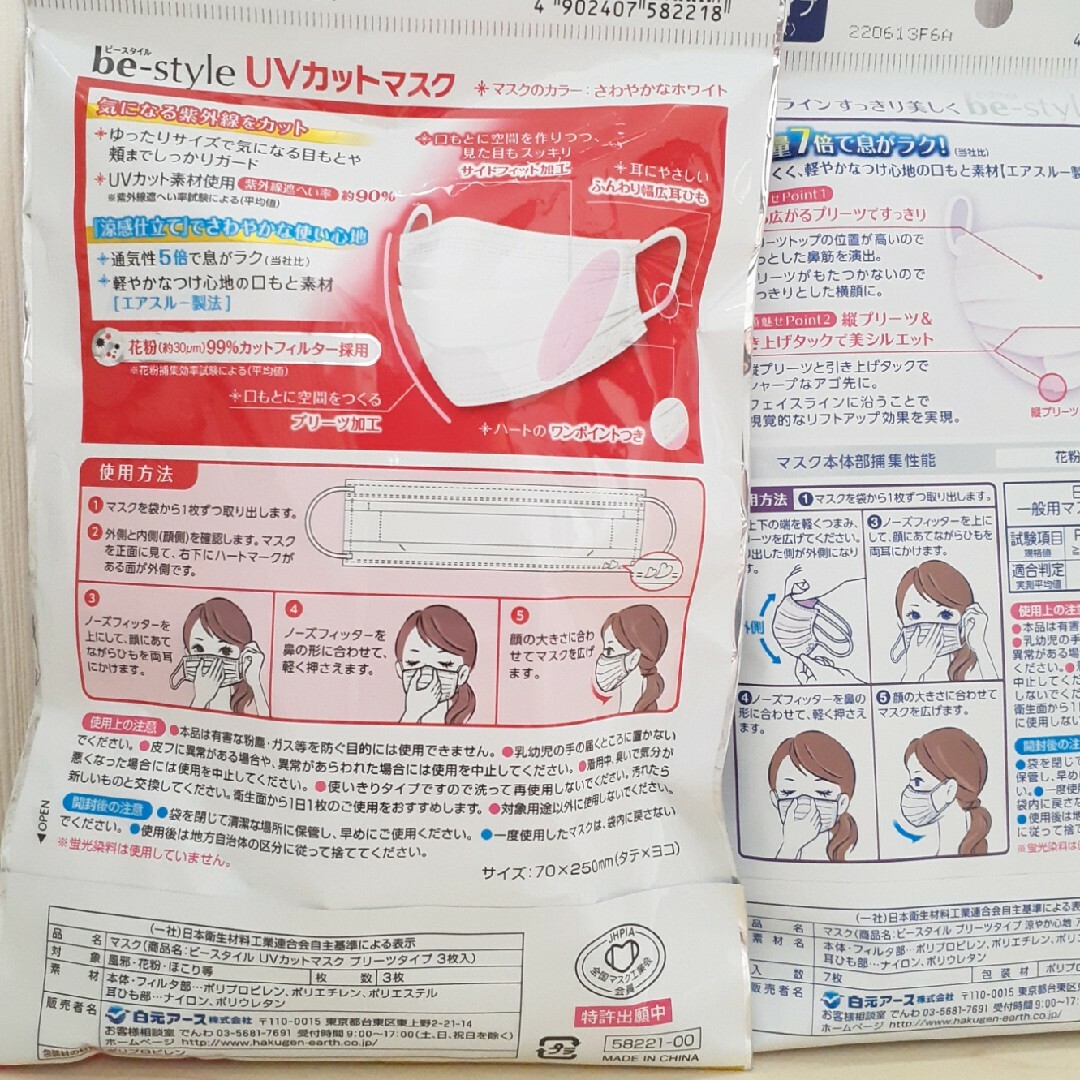 4 902407 582218
ビースタイル
be-style UVカットマスク
＊マスクのカラー：さわやかなホワイト
気になる紫外線をカット
＊ゆったりサイズで気になる目もとや
頬までしっかりガード
＊UVカット素材使用 紫外線遮へい率 約90%
※紫外線遮へい率試験による(平均値)
「涼感仕立て」でさわやかな使い心地
＊通気性5倍で息がラク(当社比)
＊軽やかなつけ心地の口もと素材
【エアスルー製法】
花粉(約30μm)99%カットフィルター採用
※花粉捕集効率試験による(平均値)
＊口もとに空間を作りつつ、
見た目もスッキリ
サイドフィット加工
＊耳にやさしい
ふんわり幅広耳ひも
＊口もとに空間をつくる
プリーツ加工
＊ハートのワンポイントつき
使用方法
1 マスクを袋から1枚ずつ取り出します。
2 外側と内側(顔側)を確認します。マスク
を正面に見て、右下にハートマークが
ある面が外側です。
3
ノーズフィッターを
上にして、顔にあて
ながらひもを両耳
にかけます。
4
ノーズフィッターを
鼻の形に合わせて、
軽く押さえます。
5
顔の大きさに合わ
せてマスクを広げ
ます。
使用上の注意 ●本品は有害な粉塵・ガス等を防ぐ目的には使用できません。●乳幼児の手の届くところに置かない
でください。●皮フに異常がある場合や、異常があらわれた場合には使用を中止してください。●着用中、臭いで気分が
悪くなった場合には使用を中止してください。●使いきりタイプですので洗って再使用しないでください。汚れたら
新しいものと交換してください。衛生面から1日1枚のご使用をおすすめします。●対象用途以外に使用しないでください。
開封後の注意 ●袋を閉じて清潔な場所に保管し、早めにご使用ください。●一度使用したマスクは、袋内に戻さない
でください。●使用後は地方自治体の区分に従って捨ててください。
※蛍光染料は使用していません。
◀OPEN
サイズ：70×250mm(タテ×ヨコ)
(一社)日本衛生材料工業連合会自主基準による表示
品名 マスク(商品名：ビースタイル UVカットマスク プリーツタイプ 3枚入)
対象 風邪・花粉・ほこり等 枚数 3枚
素材 本体・フィルタ部…ポリプロピレン、ポリエチレン、ポリエステル
耳ひも部…ナイロン、ポリウレタン
販売者名 白元アース株式会社 〒110-0015 東京都台東区東上野2-21-14
お客様相談室 でんわ 03-5681-7691 受付時間 9:00〜17:00(土、日、祝日を除く)
ホームページ http://www.hakugen-earth.co.jp/
JHPIA
全国マスク工業会
会員
特許出願中
58221-00
MADE IN CHINA
220613F6A
ラインすっきり美しく be-style
量7倍で息がラク!(当社比)
くく、軽やかなつけ心地の口もと素材【エアスルー製
せPoint1
広がるプリーツですっきり
ーツトップの位置が高いので
っとした鼻筋を演出。
リーツがもたつかないので
っきりとした横顔に。
魅せPoint2 縦プリーツ＆
き上げタックで美シルエット
プリーツと引き上げタックで
シャープなアゴ先に。
フェイスラインに沿うことで
視覚的なリフトアップ効果を実現。
縦プリーツ
マスク本体部捕集性能
花粉
用方法 1 マスクを袋から1枚ずつ取り出します。
上下の端を軽くつまみ、
ーツを広げてください。
出した側が外側になり
す。
3 ノーズフィッターを上に
して、顔にあてながらひもを
両耳にかけます。
4 ノーズフィッターを鼻の
形に合わせて、軽く押さえ
ます。
5 顔の大きさに合わせて
マスクを広げます。
一般用マ
試験項目
規格値
適合判定
実測平均値
使用上の注
●本品は有害
●乳幼児の手
異常がある場
ください。
中止してく
しないでくだ
衛生面から1
に使用しない
開封後の注
●袋を閉じて
保管し、早め
●一度使
袋内に戻さ
●使用後は地
に従って捨て
※蛍光染料は
(一社)日本衛生材料工業連合会自主基準による表
品名 マスク(商品名：ビースタイル プリーツタイプ 涼やか心地
素材名 本体・フィルタ部…ポリプロピレン、ポリエチレン、ポリ
耳ひも部…ナイロン、ポリウレタン
入数 7枚 包装材 ポリプロ
白元アース株式会社 〒110-0015 東京都台東区東
お客様相談室 でんわ 03-5681-7691 受付時間 9:00〜17
ホームページ http://www.hakugen-earth.co.jp/